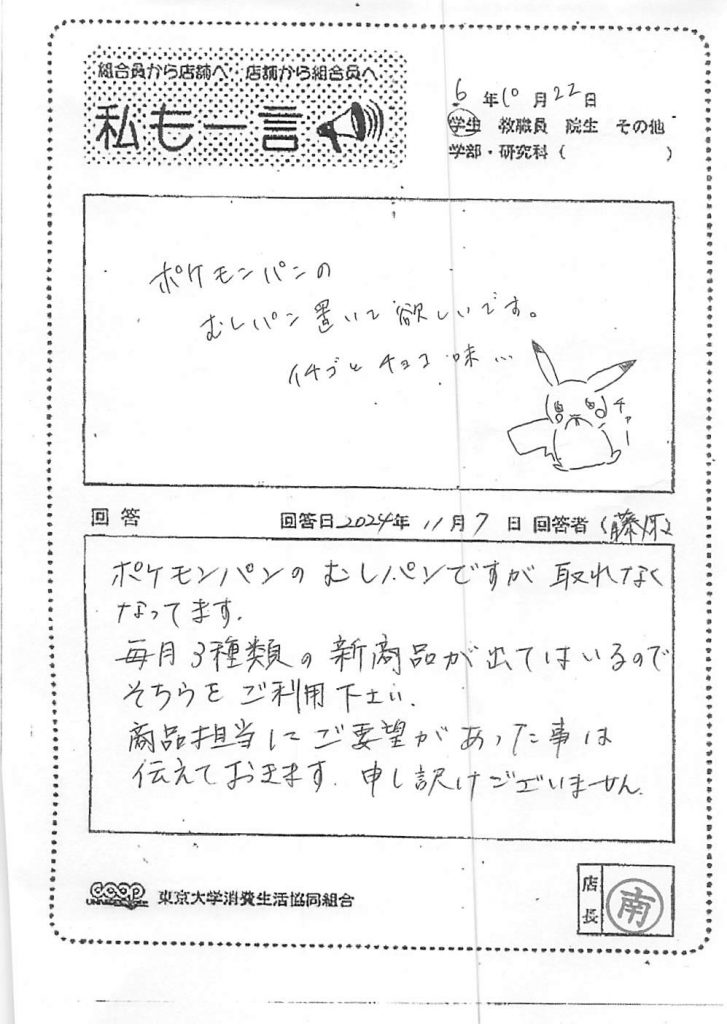 組合員から店舗へ 店舗から組合員へ
私も一言
6年10月22日
学生 教職員 院生 その他
学部・研究科( )
ポケモンパンの
むしパン置いて欲しいです。
イチゴとチョコ味…
チャー
回答 回答日2024年11月7日 回答者(藤原)
ポケモンパンのむしパンですが取れなく
なってます.
毎月3種類の新商品が出てはいるので
そちらをご利用下さい.
商品担当にご要望があった事は
伝えておきます. 申し訳けございません.
coop 東京大学消費生活協同組合
店長 南